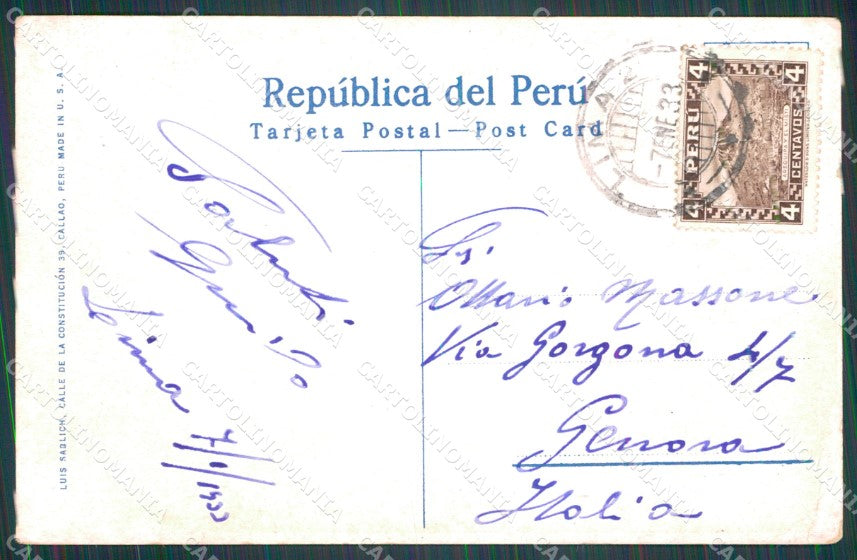 República del Perú
Tarjeta Postal — Post Card
LUIS SABLICH, CALLE DE LA CONSTITUCIÓN 39, CALLAO, PERU MADE IN U. S. A.
LIMA
-7ENE.33
4 4
PERÚ
CENTAVOS
4 4
Saluti
Lima 7/1/1933
Ottavio Massone
Via Gorgona 4/7
Genova
Italia
CARTOLINOMANIA